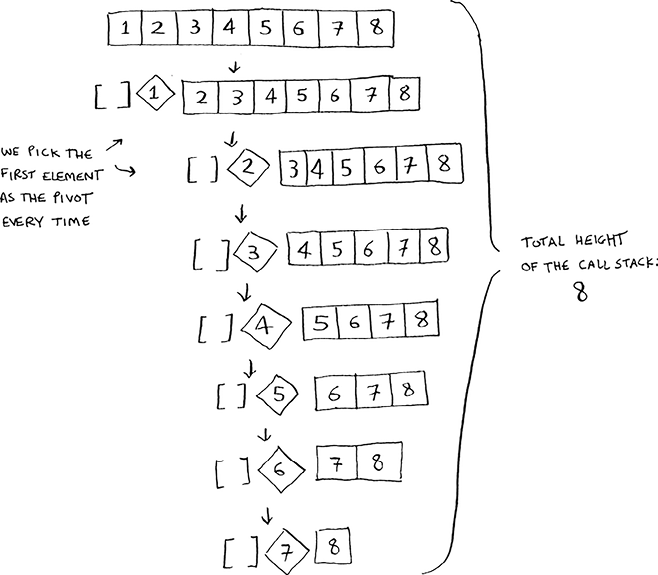 1 2 3 4 5 6 7 8
[ ] 1 2 3 4 5 6 7 8
[ ] 2 3 4 5 6 7 8
WE PICK THE
FIRST ELEMENT
AS THE PIVOT
EVERY TIME
[ ] 3 4 5 6 7 8
[ ] 4 5 6 7 8
[ ] 5 6 7 8
[ ] 6 7 8
[ ] 7 8
TOTAL HEIGHT
OF THE CALL STACK:
8